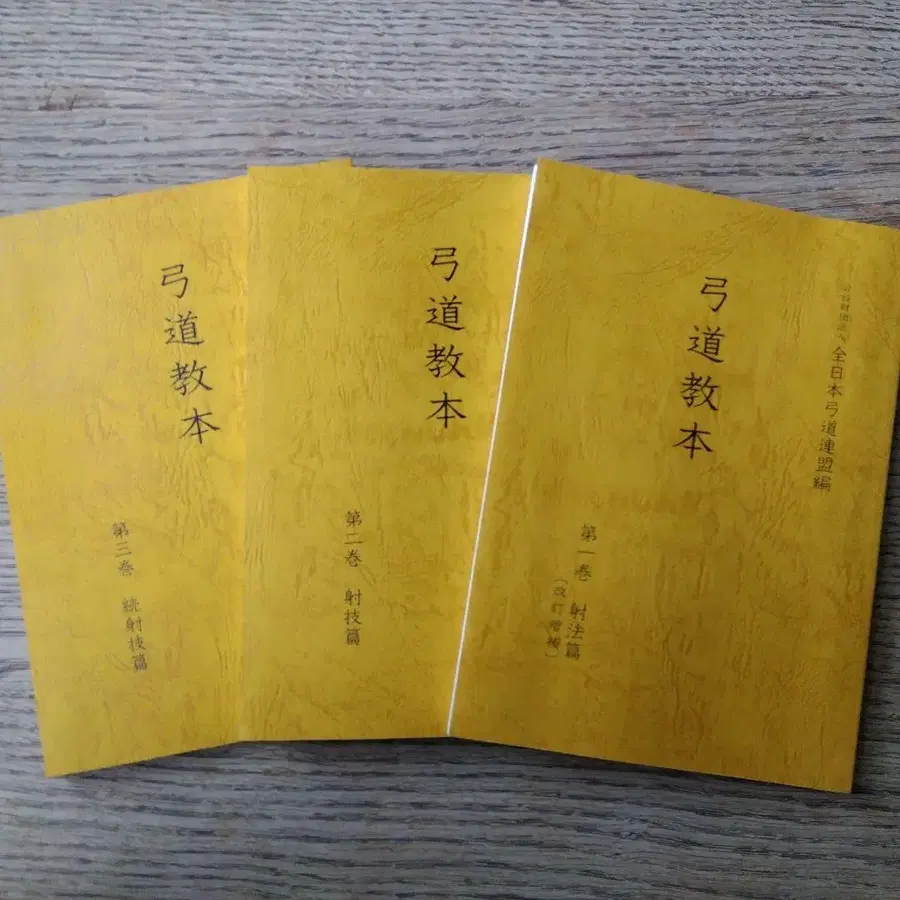 公益財団法人 全日本弓道連盟編
弓道教本
第一巻 射法篇
(改訂増補)
弓道教本
第二巻 射技篇
弓道教本
第三巻 続射技篇